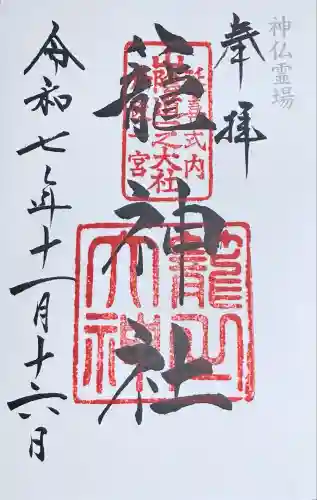 神仏霊場
奉拝
籠神社
延喜式内
山陰道之大社
一宮
籠之
大神
令和七年十一月十六日